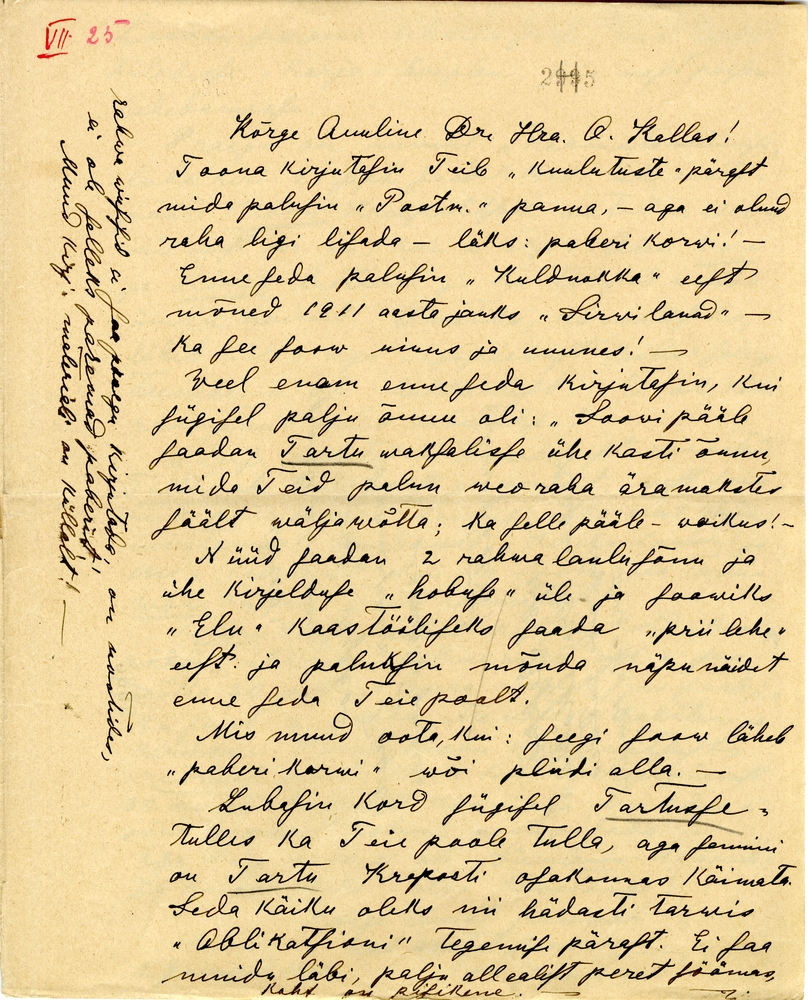 VII 25
2995
Kõrge Auuline Dr. Hra. O. Kallas!
Toona kirjutasin Teile „Kuulutuste" pärast
mida palusin „Postm." panna, – aga ei olnud
raha ligi lisada – läks: paberi korwi! –
Enne seda palusin „Kuldnokka" eest
mõned 1911 aasta jauks „Sirwilauad" –
Ka see soow ninus ja nunnes! –
Weel enam enne seda kirjutasin, kui
sügisel palju õunu oli: „Soowi pääle
saadan Tartu waksalisse ühe kasti õunu,
mida Teid palun weoraha äramakstes
säält wäljawõtta; ka selle pääle – waikus! –
Nüüd saadan 2 rahwalaulu sõnu ja
ühe kirjelduse „hobuse" üle ja soowiks
„Elu" kaastööliseks saada „prii lehe"
eest ja paluksin mõnda näpunäidet
enne seda Teie poolt.
Mis muud oota, kui: seegi soow läheb
„paberi korwi" wõi pliidi alla. –
Lubasin kord sügisel Tartusse
tulles ka Teie poole tulla, aga semini
on Tartu Kreposti osakonnas käimata.
Seda käiku oleks nii hädasti tarwis
„Oblikatsioni" tegemise pärast. Ei saa
muidu läbi, palju allealist peret söömas,
koht on pisikene. –
rahwa wiisid ei saa praegu kirjutada, on nootides,
ei ole selleks paremad paberist!
Muud kirj. materiali on küllalt! –